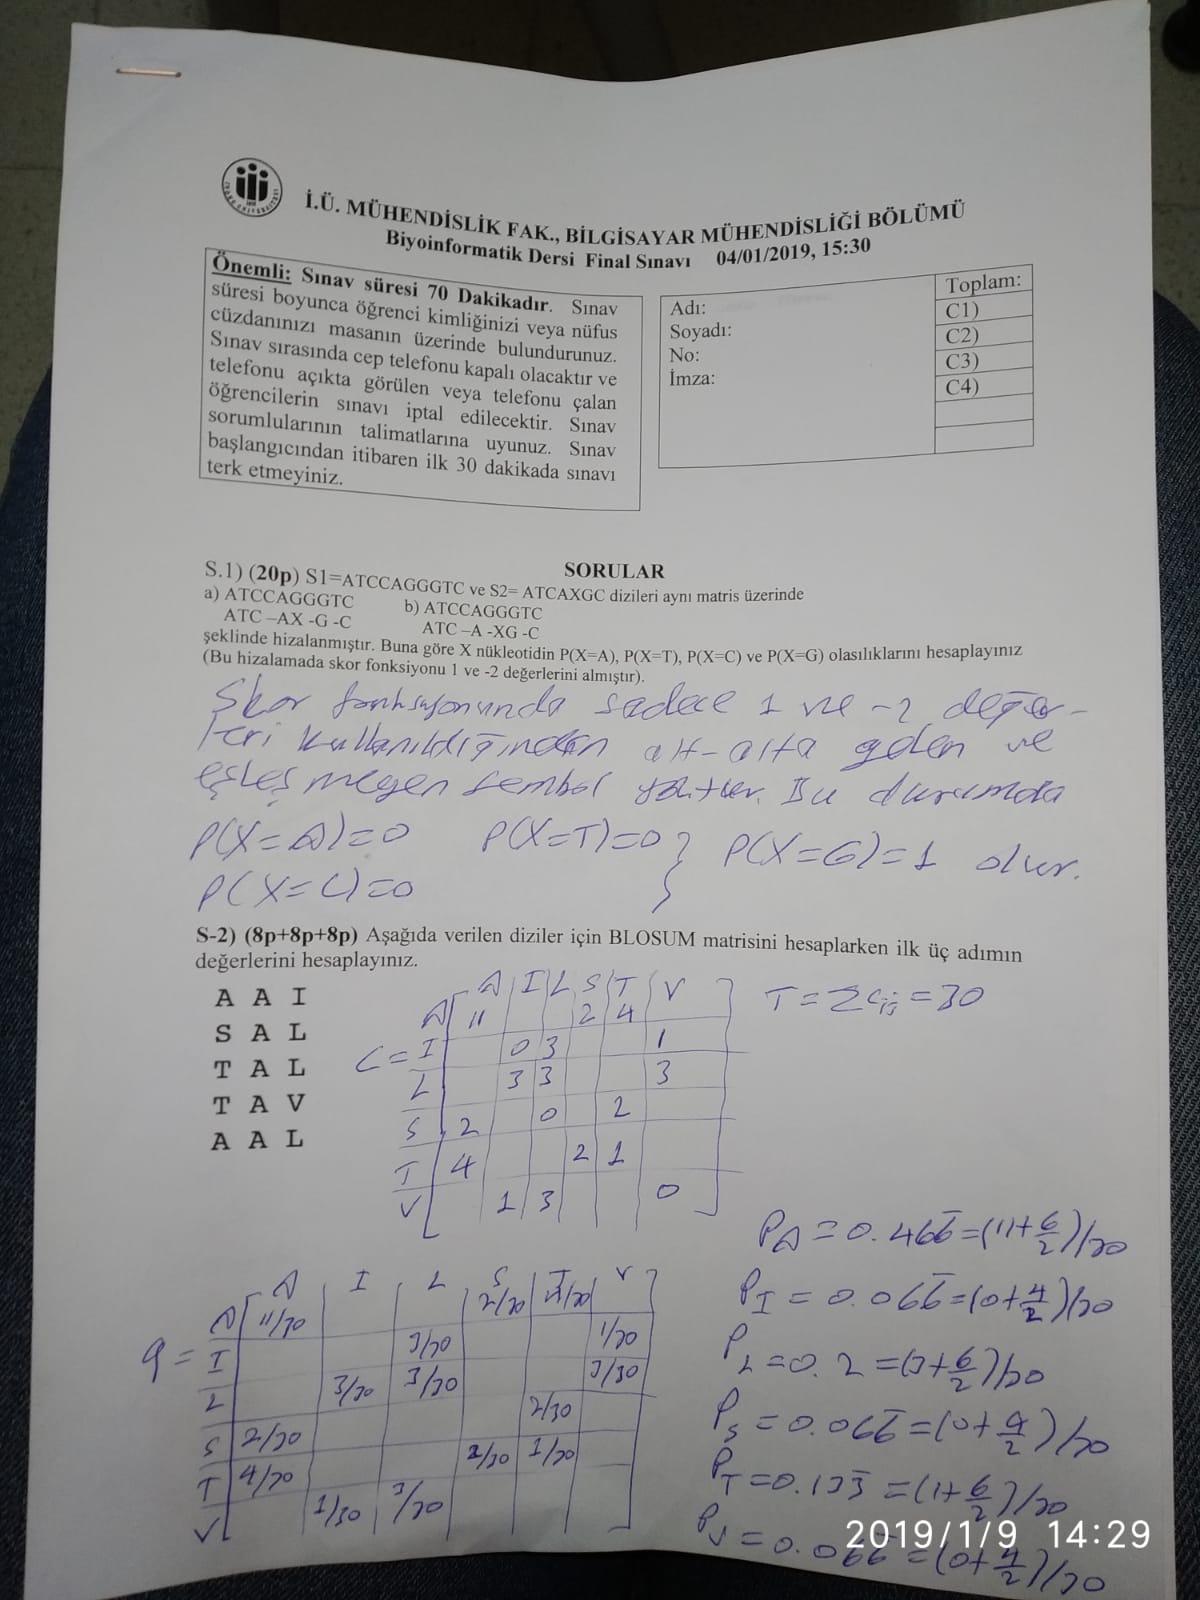 İ.Ü. MÜHENDİSLİK FAK., BİLGİSAYAR MÜHENDİSLİĞİ BÖLÜMÜ
Biyoinformatik Dersi Final Sınavı 04/01/2019, 15:30
Önemli: Sınav süresi 70 Dakikadır. Sınav
süresi boyunca öğrenci kimliğinizi veya nüfus
cüzdanınızı masanın üzerinde bulundurunuz.
Sınav sırasında cep telefonu kapalı olacaktır ve
telefonu açıkta görülen veya telefonu çalan
öğrencilerin sınavı iptal edilecektir. Sınav
sorumlularının talimatlarına uyunuz. Sınav
başlangıcından itibaren ilk 30 dakikada sınavı
terk etmeyiniz.
Adı:
Soyadı:
No:
İmza:
Toplam:
C1)
C2)
C3)
C4)
SORULAR
S.1) (20p) S1=ATCCAGGGTC ve S2= ATCAXGC dizileri aynı matris üzerinde
a) ATCCAGGGTC b) ATCCAGGGTC
ATC –AX -G -C ATC –A -XG -C
şeklinde hizalanmıştır. Buna göre X nükleotidin P(X=A), P(X=T), P(X=C) ve P(X=G) olasılıklarını hesaplayınız
(Bu hizalamada skor fonksiyonu 1 ve -2 değerlerini almıştır).
Skor fonksiyonunda sadece 1 ve -2 değer-
leri kullanıldığından alt-alta gelen ve
eşleşmeyen sembol yoktur. Bu durumda
P(X=A)=0 P(X=T)=0 } P(X=G)=1 olur.
P(X=C)=0
S-2) (8p+8p+8p) Aşağıda verilen diziler için BLOSUM matrisini hesaplarken ilk üç adımın
değerlerini hesaplayınız.
A A I
S A L
T A L
T A V
A A L
A I L S T V
A 11 2 4
C = I 0 3 1
L 3 3 3
S 2 0 2
T 4 2 1
V 1 3 0
T = Σcij = 30
A I L S T V
A 11/30 2/30 4/30
q = I 3/30 1/30
L 3/30 3/30 3/30
S 2/30 2/30
T 4/30 2/30 1/30
V 1/30 3/30
PA = 0.466 = (11+6/2)/30
PI = 0.066 = (0+4/2)/30
PL = 0.2 = (3+6/2)/30
PS = 0.066 = (0+4/2)/30
PT = 0.133 = (1+6/2)/30
PV = 0.066 = (0+4/2)/30
2019/1/9 14:29